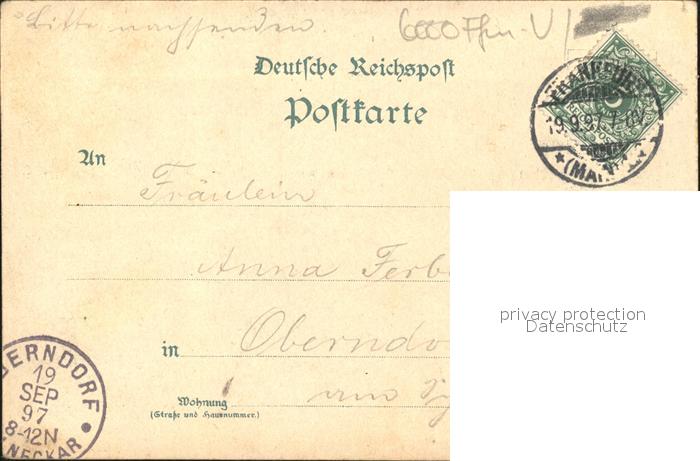 Bitte nachsenden.
6000 Ffm-V/
Deutsche Reichspost
Postkarte
FRANKFURT
19.9.97. 7-8V.
* (MAIN)
An
Fräulein
Anna Ferb
in Oberndo
am
Wohnung
(Straße und Hausnummer.)
OBERNDORF
19
SEP
97
8-12N
NECKAR
privacy protection
Datenschutz